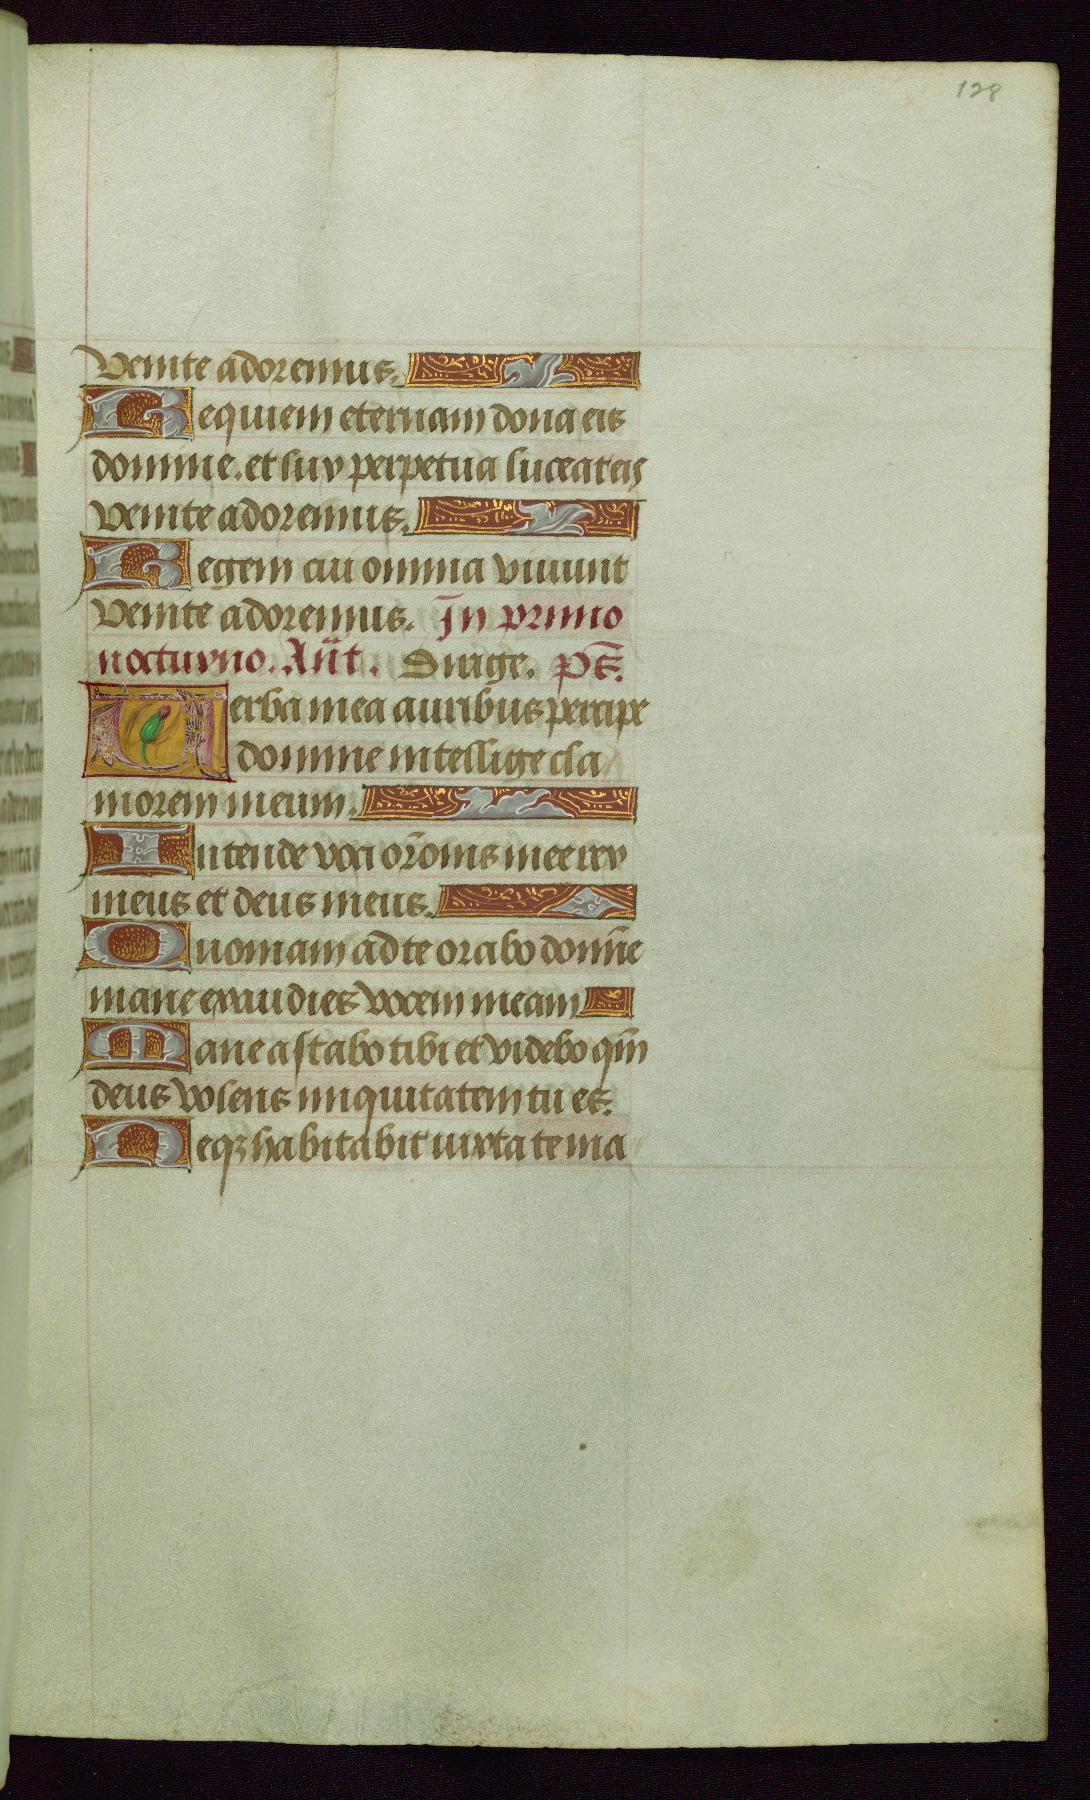 128
Venite adoremus.
Requiem eternam dona eis
domine. et lux perpetua luceat eis
Venite adoremus.
Regem cui omnia viuunt
Venite adoremus. In primo
nocturno. Añt. Dirige. Ps̄.
Verba mea auribus percipe
domine intellige cla
morem meum.
Intende voci orōnis mee rex
meus et deus meus.
Quoniam ad te orabo domīe
mane exaudies vocem meam
Mane astabo tibi et videbo qm̄
deus volens iniquitatem tu es.
Neqꝫ habitabit iuxta te ma